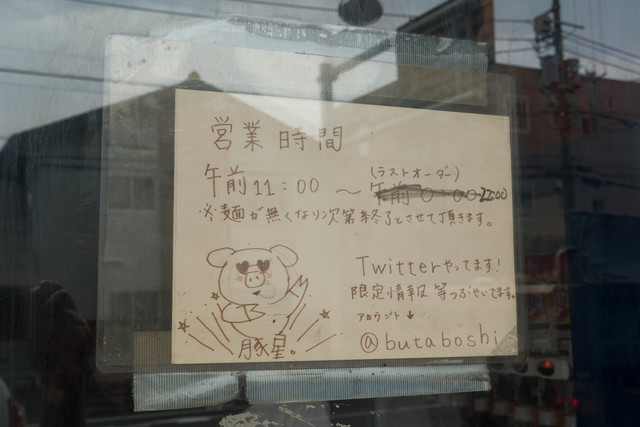 営業時間
(ラストオーダー)
午前11:00 〜 午前0:00 22:00
※麺が無くなり次第終了とさせて頂きます。
Twitterやってます!
限定情報等つぶやいてます。
アカウント↓
@butaboshi
豚星。